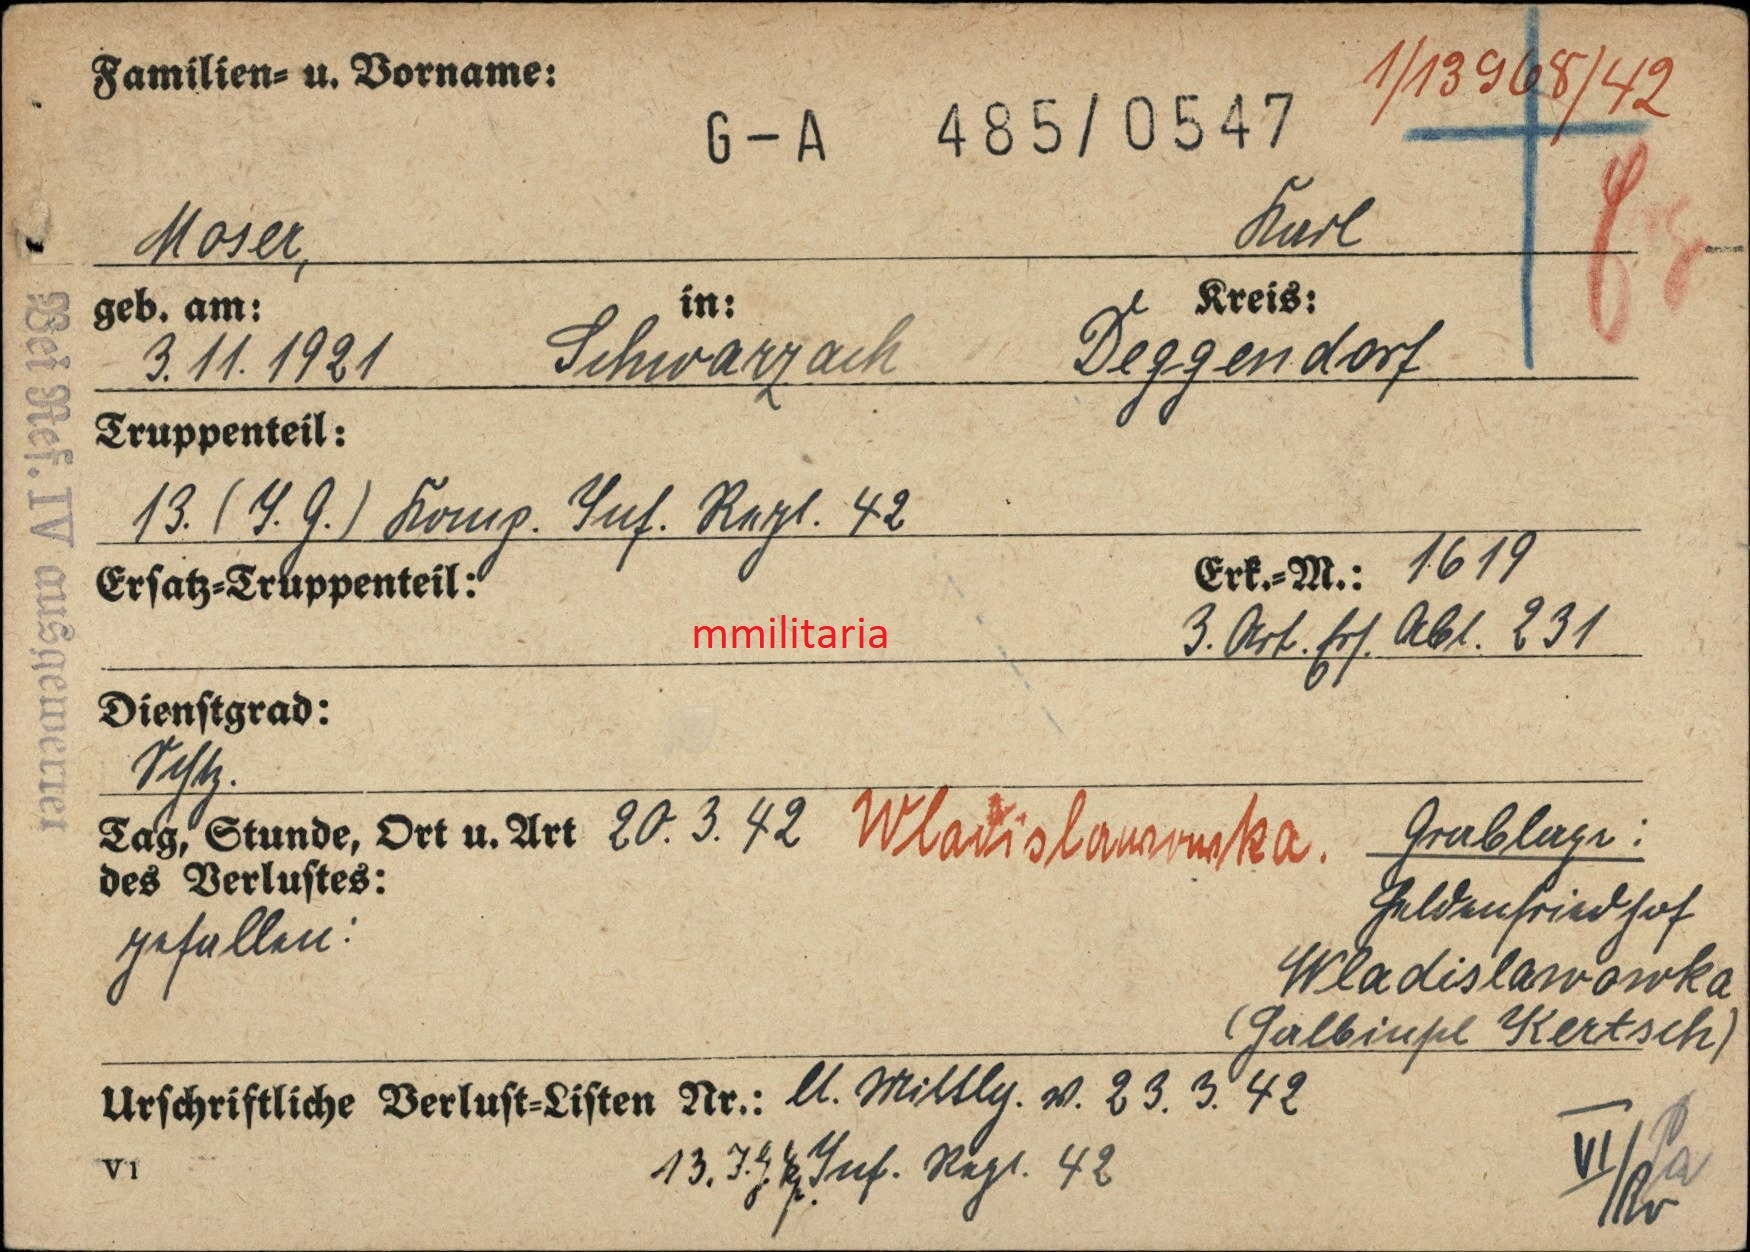 Familien- u. Vorname:
1/13968/42
G-A 485/0547
Moser, Karl
geb. am: in: Kreis:
3.11.1921 Schwarzach Deggendorf
Truppenteil:
13. (I. G.) Komp. Inf. Regt. 42
Ersatz-Truppenteil: Erk.-M.: 1619
3. Art. Ers. Abt. 231
mmilitaria
Dienstgrad:
Schtz.
Tag, Stunde, Ort u. Art 20. 3. 42 Wladislawowka. Grablage:
des Verlustes: Heldenfriedhof
gefallen: Wladislawowka
(Halbinsel Kertsch)
Urschriftliche Verlust-Listen Nr.: lt. Mittlg. v. 23. 3. 42
V1 13. I.G. Kp. Inf. Regt. 42
VI/
Bei Ref. IV ausgewertet